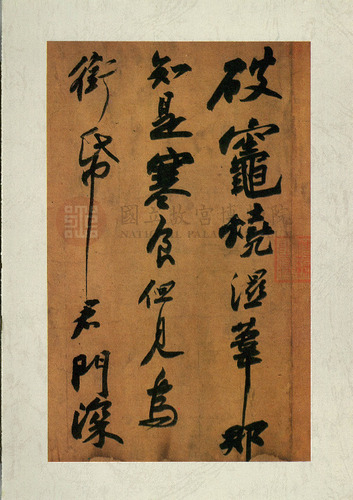 破竈燒濕葦那
知是寒食但見烏
銜帋君門深
國立故宮博物院
NATIONAL PALACE